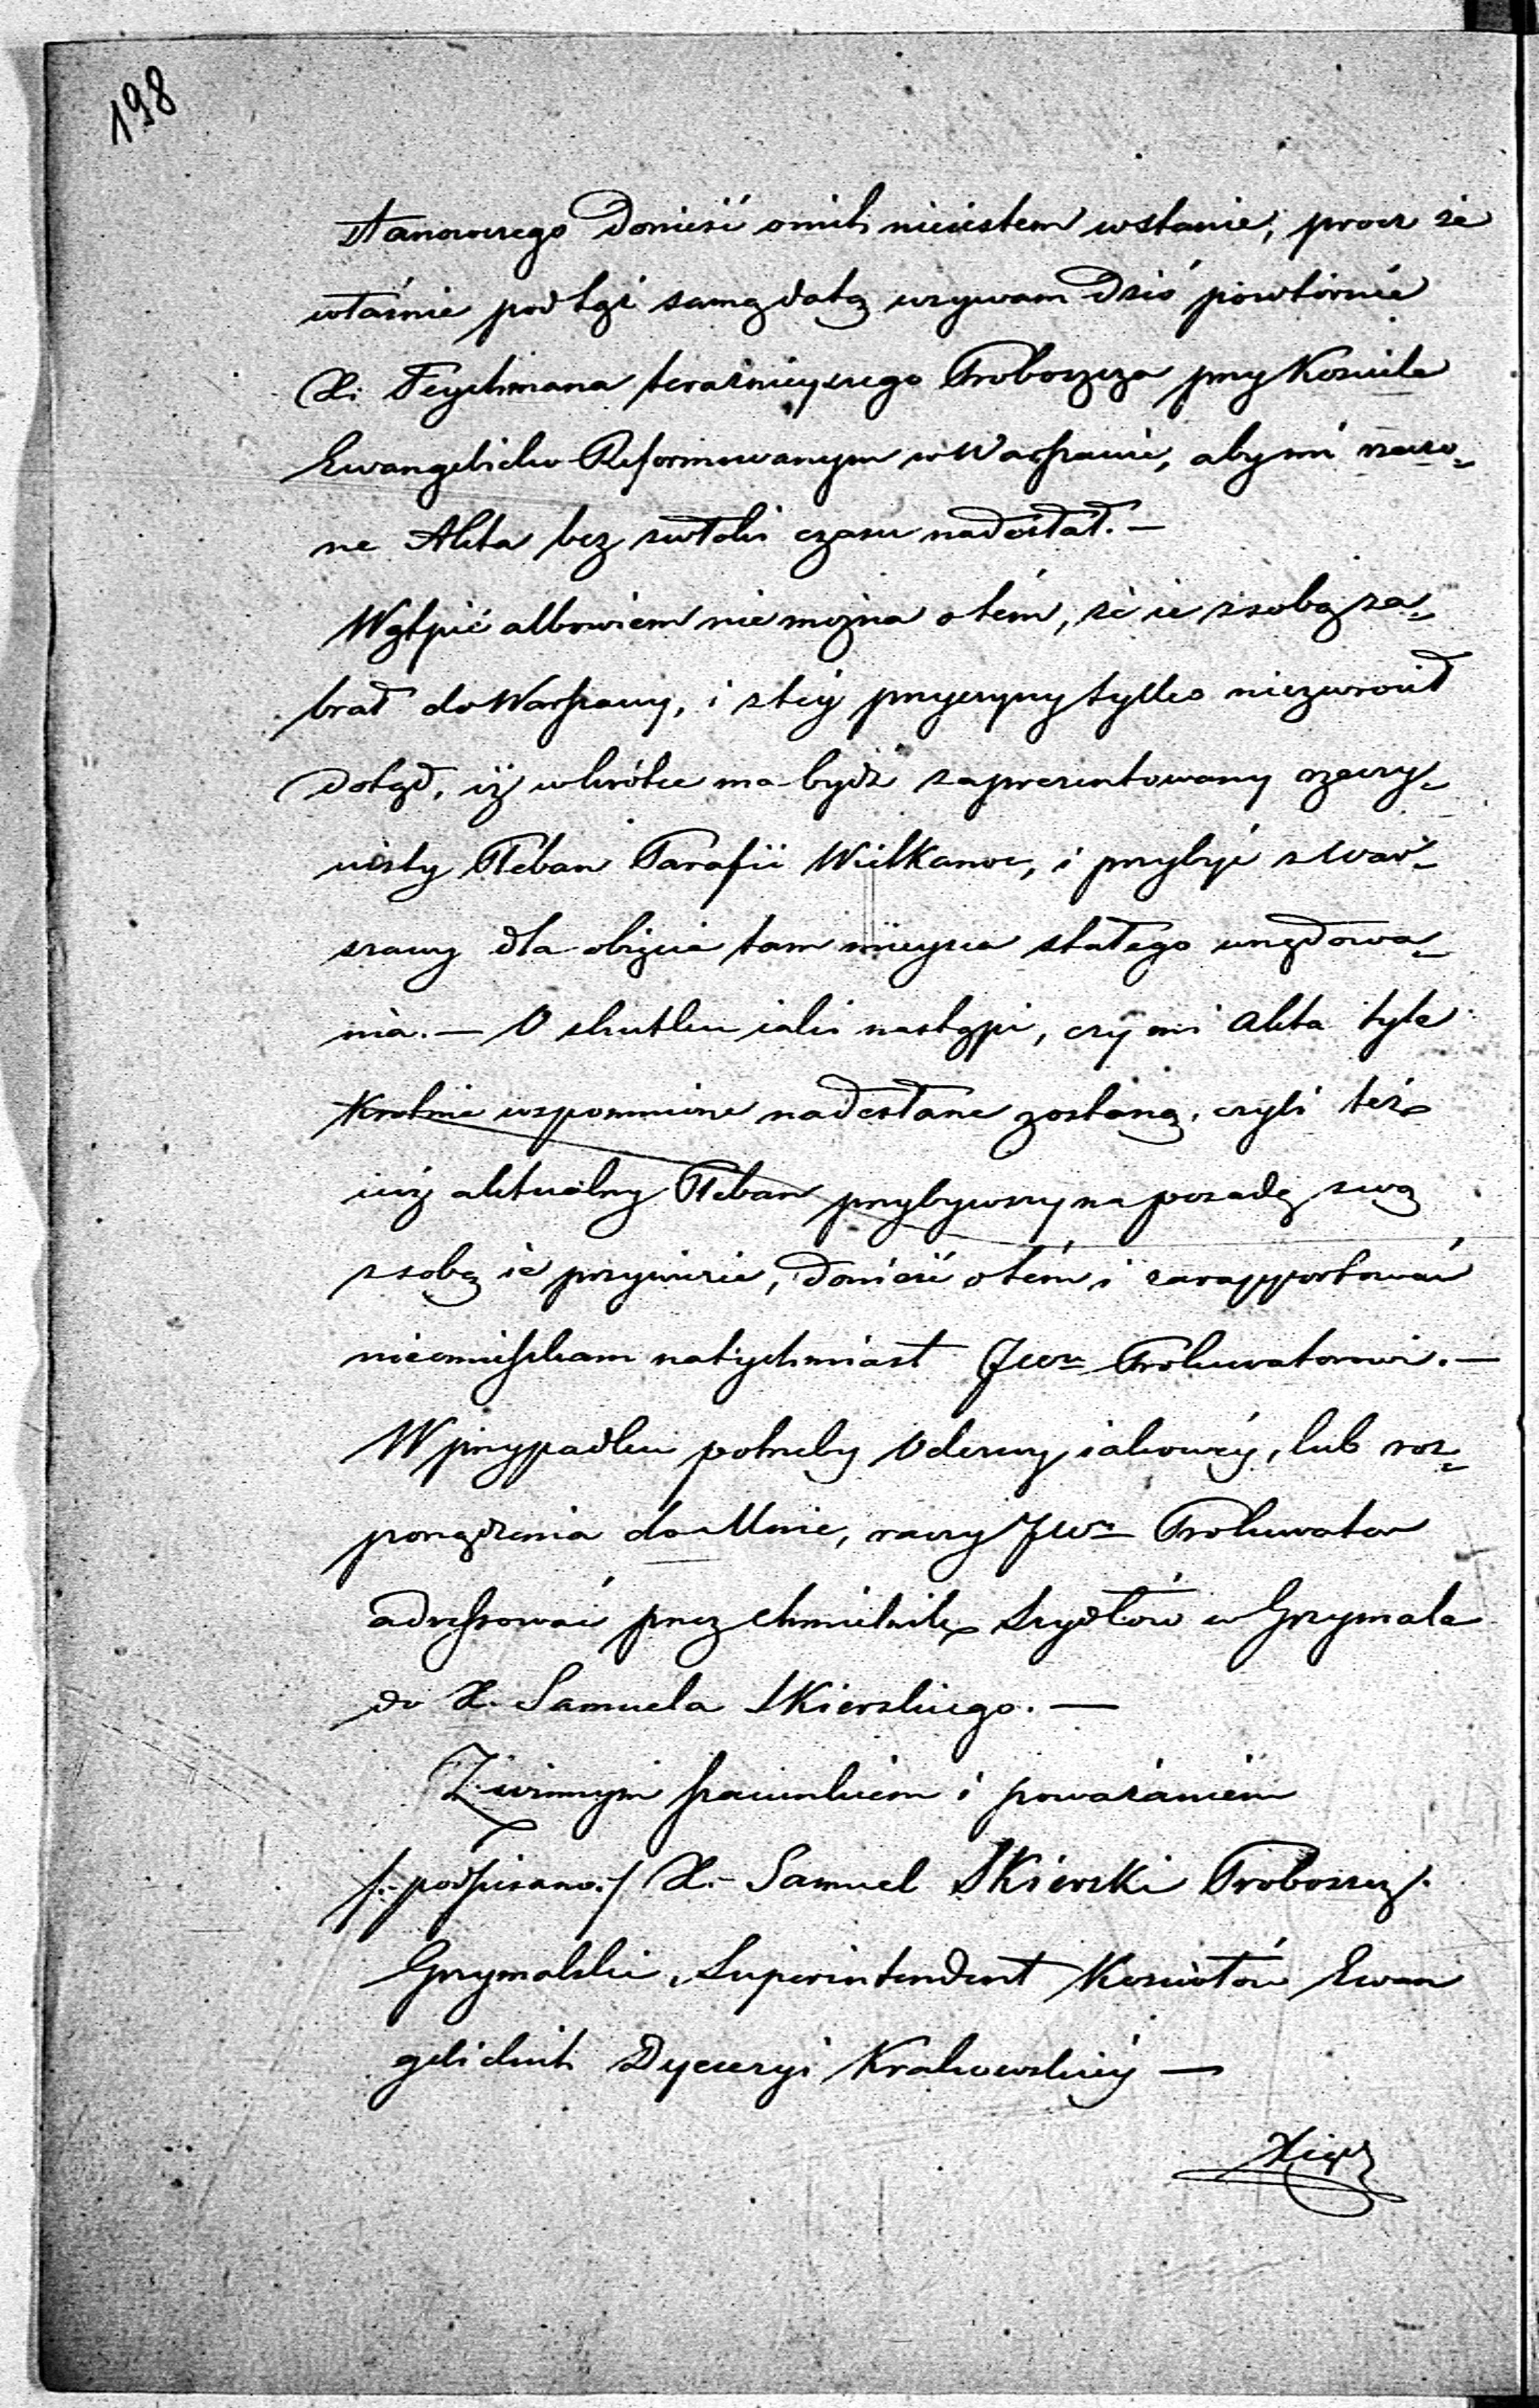 198
stanowczego donieść omih nieiestem wstanie, procz że
właśnie pod tąż samą datą wzywam dziś powtórnie
X. Teychmana teraźnieyszego Proboszcza przy Kosciele
Ewangelicko Reformowanym w Warszawie, aby mi rzeczo=
ne Akta bez zwłoki czasu nadesłał. —
Wątpić albowiem nie można o tém, że ie z sobą za=
brał do Warszawy, i z téy przyczyny tylko niezwrócił
dotąd, iż wkrótce ma bydź zaprezentowany rzeczy=
wisty Pleban Parafii Wielkanoc, i przybyć z War=
szawy dla obięcia tam mieysca stałego urzędowa=
nia. — O skutku iaki nastąpi, czy mi Akta tyle
Krotnie wspomnione nadesłane zostaną, czyli też
iuż aktualny Pleban przybywszy na posadę swą
z sobą ie przywiezie, donieść o tém i zarapportować
niemieszkam natychmiast JWu Prokuratorowi. —
W przypadku potrzeby Odezwy iakowéy, lub roz=
porządzenia do Mnie, raczy JWn Prokurator
adressować przez Chmielnik, Szydłów w Grzymala
do X. Samuela Skierskiego. —
Z winnym szacunkiem i poważaniem
/:-podpisano:/ X. Samuel Skierski Proboszcz
Grzymalski, Superintendent Kosciołów Ewan
gelickich Dyecezyi Krakowskiéy —
Xiądz